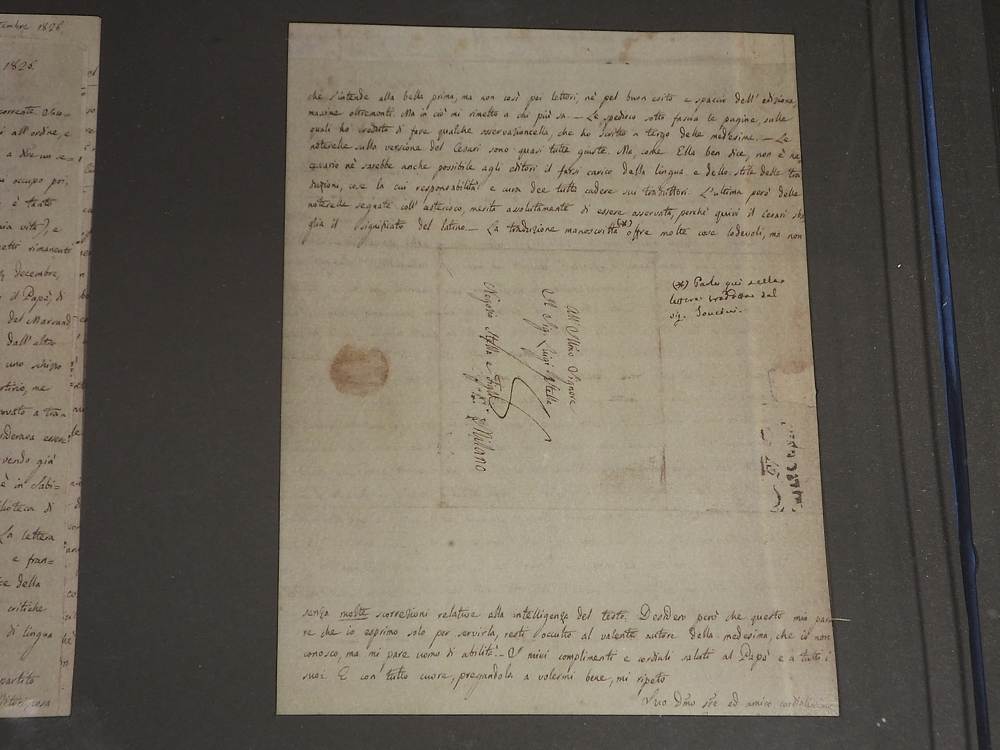 tembre 1826.
1826.
corrente
i all'ordine, e
a dire un se=
occupo poi,
è tanto
mia vita?, e
rimanente
decembre,
il Papà, di
del Marsand
dall'altro
uno
me
ovato a tra=
essere
vendo già
è in Sabi=
lioteca di
La lettera
e fran=
ce della
critiche
di lingua
partito
che s'intende alla bella prima, ma non così pei lettori, nè pel buon esito e spaccio dell'edizione,
massime oltremonti. Ma in ciò mi rimetto a chi più sa. — Le spedisco sotto fascia le pagine, sulle
quali ho creduto di fare qualche osservazioncella, che ho scritta a tergo delle medesime. — Le
noterelle sulla versione del Cesari sono quasi tutte giuste. Ma, come Ella ben dice, non è ne,
cessario nè sarebbe anche possibile agli editori il farsi carico della lingua e dello stile delle tra
duzioni, cose la cui responsabilità e cura dee tutta cadere sui traduttori. L'ultima però delle
noterelle segnate coll'asterisco, merita assolutamente di essere osservata, perchè quivi il Cesari sba
glia il significato del latino. — La traduzione manoscritta (*) offre molte cose lodevoli, ma non
(*) Parlo qui della
lettera tradotta dal
sig.
All'Illmo Signore
Il Sig. Luigi Stella
Negozio Stella e Figli
Milano
senza molte scorrezioni relative alla intelligenza del testo. Desidero però che questo mio pare
re che io esprimo solo per servirla, resti occulto al valente autore della medesima, che io non
conosco, ma mi pare uomo di abilità. — I miei complimenti e cordiali saluti al Papà e a tutti i
suoi. E con tutto cuore, pregandola a volermi bene, mi ripeto
Suo Dmo sre ed amico cordialissimo